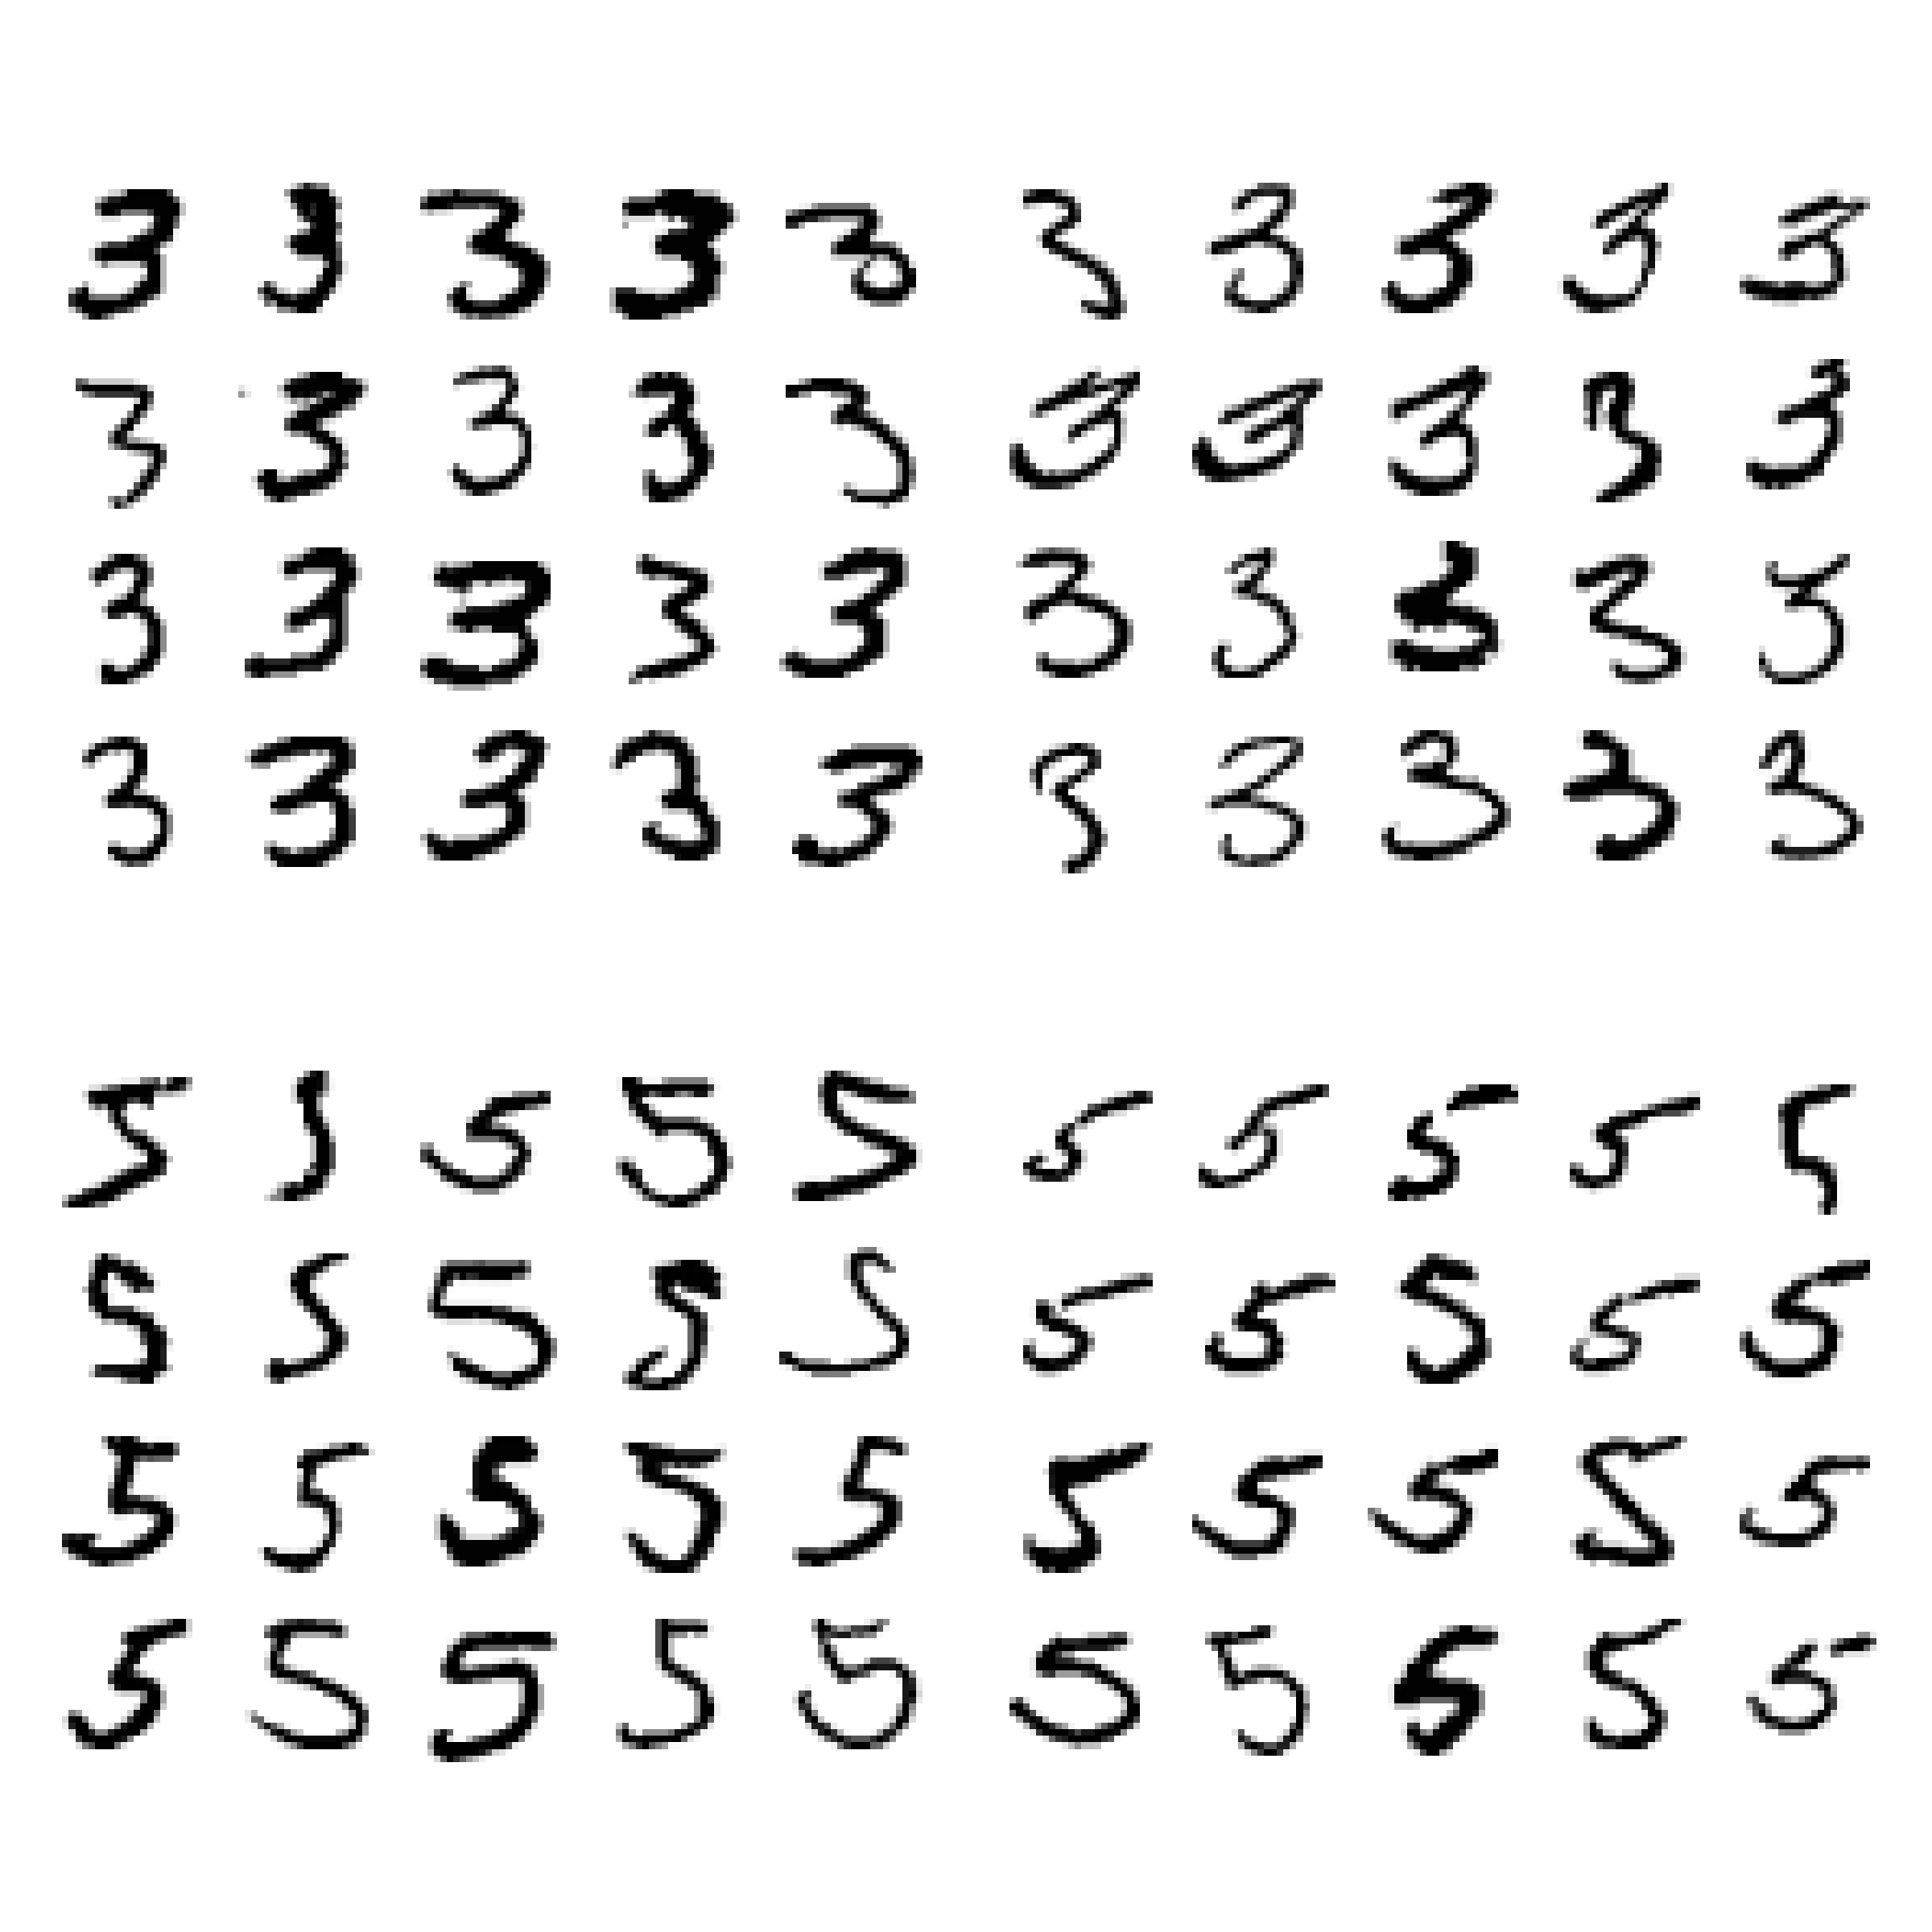 3 3 3 3 3 3 3 3 3 3
3 3 3 3 3 3 3 3 3 3
3 3 3 3 3 3 3 3 3 3
3 3 3 3 3 3 3 3 3 3
5 5 5 5 5 5 5 5 5 5
5 5 5 5 5 5 5 5 5 5
5 5 5 5 5 5 5 5 5 5
5 5 5 5 5 5 5 5 5 5